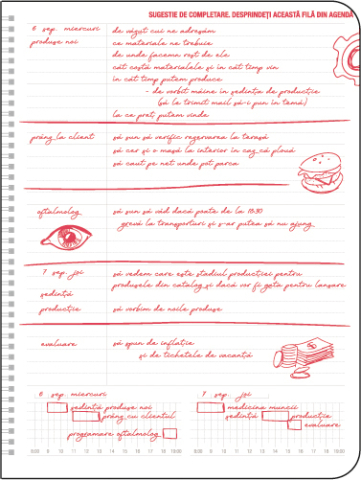 SUGESTIE DE COMPLETARE. DESPRINDEȚI ACEASTĂ FILĂ DIN AGENDĂ
6 sep. miercuri
produse noi
de văzut cui ne adresăm
ce materiale ne trebuie
de unde facem rost de ele
cât costă materialele și în cât timp vin
în cât timp putem produce
- de vorbit mâine în ședința de producție
(să le trimit mail să-i pun în temă)
la ce preț putem vinde
prânz la client
să sun să verific rezervarea la terasă
să cer și o masă la interior în caz că plouă
să caut pe net unde pot parca
oftalmolog
să sun să văd dacă poate de la 18.30
grevă la transporturi și s-ar putea să nu ajung
7 sep. joi
ședință
producție
să vedem care este stadiul producției pentru
produsele din catalog și dacă vor fi gata pentru lansare
să vorbim de noile produse
evaluare
să spun de inflație
și de tichetele de vacanță
6 sep. miercuri
ședință produse noi
prânz cu clientul
programare oftalmolog
7 sep. joi
medicina muncii
ședință producție
evaluare